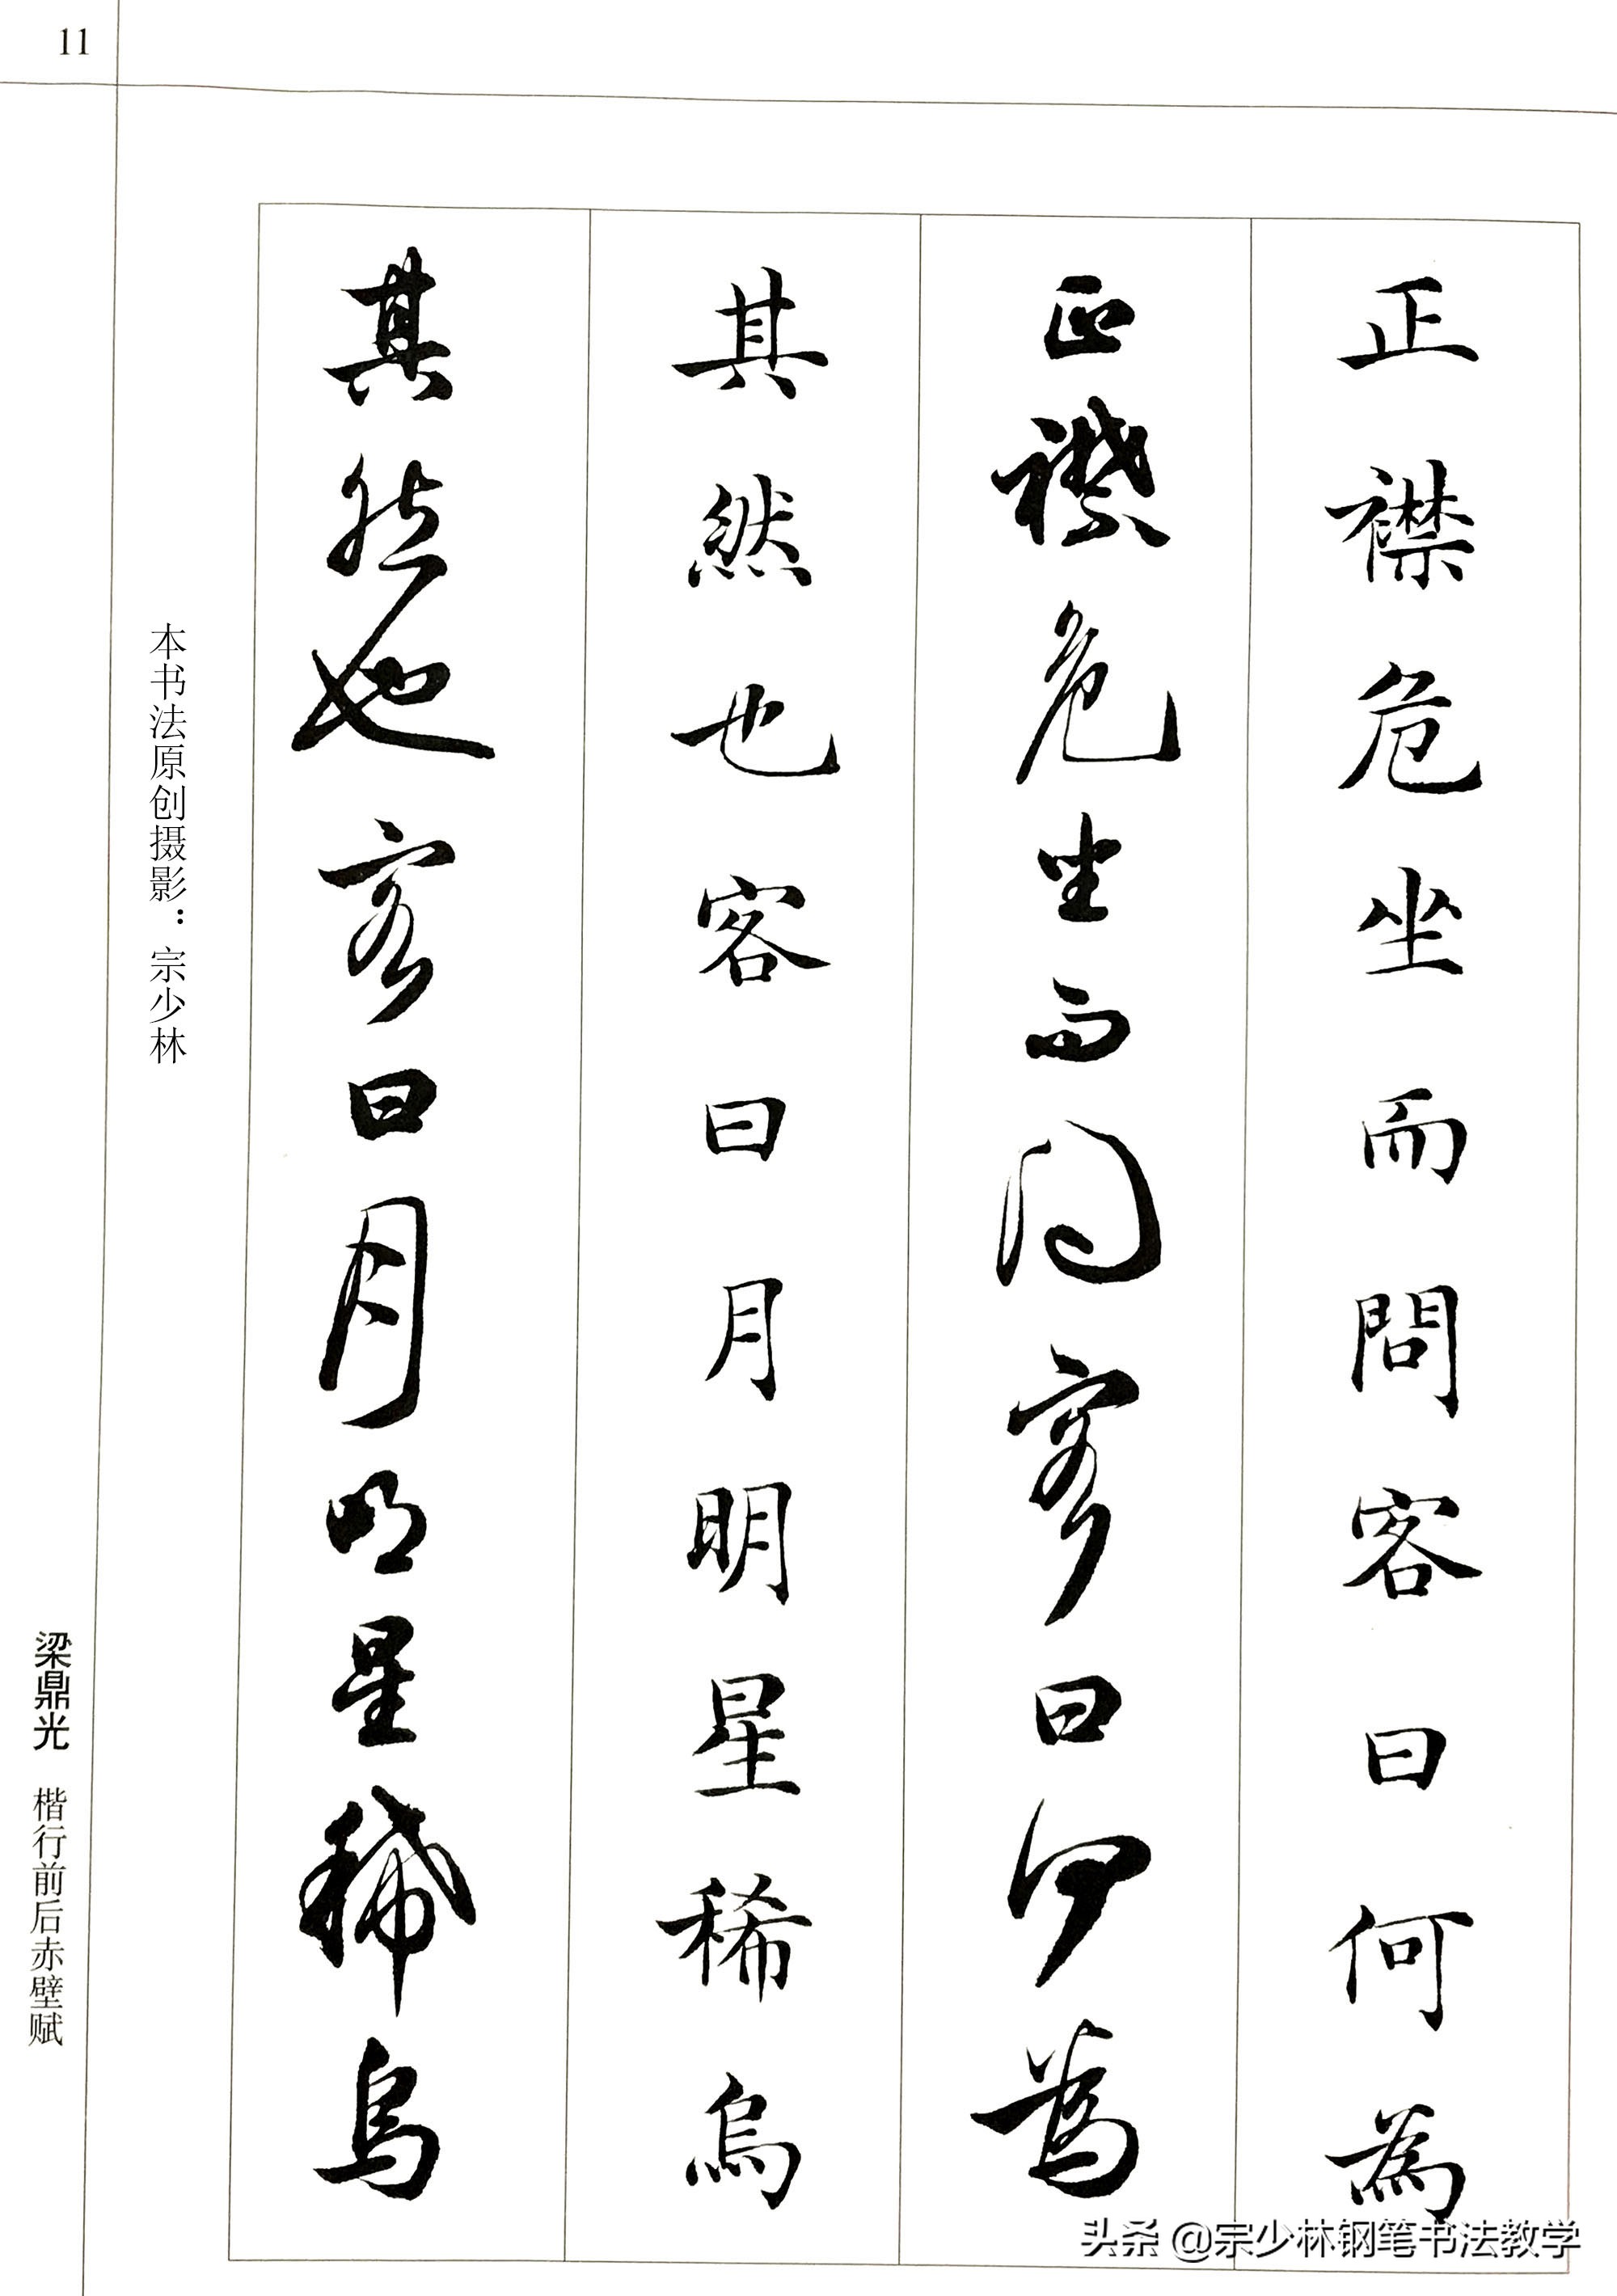 11
正襟危坐而問客曰何為
正襟危坐而问客曰何為
其然也客曰月明星稀烏
其然也客曰月明星稀烏
本书法原创摄影：宗少林
梁鼎光 楷行前后赤壁赋
头条 @宗少林钢笔书法教学